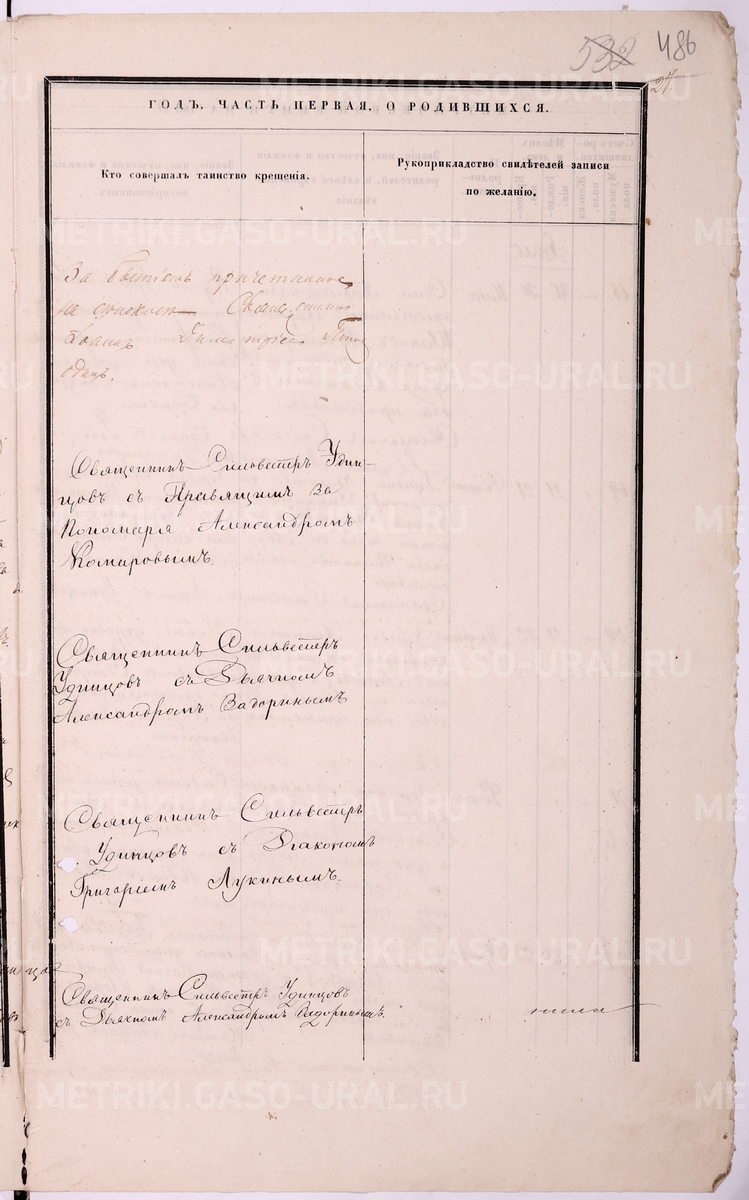 532 486
27.
ГОДЪ, ЧАСТЬ ПЕРВАЯ, О РОДИВШИХСЯ.
Кто совершалъ таинство крещенія.
Рукоприкладство свидѣтелей записи
по желанію.
За
одинъ.
Священникъ Сильвестръ Удин-
цовъ съ Правящимъ за
Пономаря Александромъ
Комаровымъ.
Священникъ Сильвестръ
Удинцовъ съ Дьячкомъ
Александромъ Задоринымъ
Священникъ Сильвестръ
Удинцовъ съ Діакономъ
Григоріемъ Лукинымъ.
Священникъ Сильвестръ Удинцовъ
съ Дьячкомъ Александромъ Задоринымъ.
METRIKI.GASO-URAL.RU